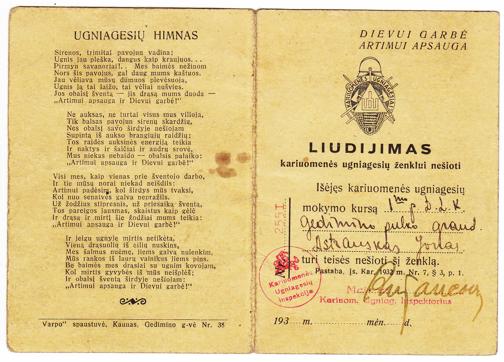 UGNIAGESIŲ HIMNAS
Sirenos, trimitai pavojun vadina;
Ugnis jau pleška, dangus kaip kraujuos...
Pirmyn savanoriai!.. Mes baimės nežinom
Nors šis pavojus, gal daug mums kaštuos.
Jau vėliava mūsų dūmuos plevėsuoja,
Ugnis ją tai laižo, tai vėliai nušvies.
Jos obalsį šventą — jis drąsą mums duoda —
„Artimui apsauga ir Dievui garbė!“
Ne auksas, ne turtai visus mus vilioja,
Tik balsas pavojun sirenų skardžių,
Nes obalsį savo širdyje nešiojam
Supintą iš aukso brangiųjų raidžių;
Tos raidės auksinės energiją teikia
Ir naktys ir šalčiai ir audrų srovė,
Mus niekas nebaido — obalsis palaiko:
„Artimui apsauga ir Dievui garbė!“
Visi mes, kaip vienas prie šventojo darbo,
Ir tie mūsų norai niekad neišdils:
Artimui padėsim, kol širdys mūs plaka,
Kol nuo senatvės galva nepražils.
Už žodžius stipresnis, už priesaiką šventa,
Tos pareigos jausmas, skaistus kaip gėlė
Ir drąsą ir mirtį šie žodžiai mums teikia:
„Artimui apsauga ir Dievui garbė!“
Ir jeigu ugnyje mirtis netikėta,
Vieną drąsuolio iš eilių nuskins,
Mes šalmus nuėmę, liens galvą nulenkim,
Mūs rankos iš laurų vainikus jiems pins.
Be baimės mes drąsiai su ugnim kovojam,
Kol mirtis gyvybės iš mūs neišplėš;
Ir obalsį šventą širdyje nešiojam:
„Artimui apsauga ir Dievui garbė!“
„Varpo“ spaustuvė, Kaunas, Gedimino g-vė Nr. 38
DIEVUI GARBĖ
ARTIMUI APSAUGA
LIUDIJIMAS
kariuomenės ugniagesių ženklui nešioti
Išėjęs kariuomenės ugniagesių
mokymo kursą 1mo p. D.L.K.
Gedimino pulko grand.
Astrauskas Jonas
turi teisės nešioti šį ženklą.
Pastaba, įs. Kar. 1932 m. Nr. 7, § 3, p. 1.
Kariuomenės
Ugniagesių
Inspekcija
Karinom. Ugniag. Inspektorius
193 m. mėn. d.